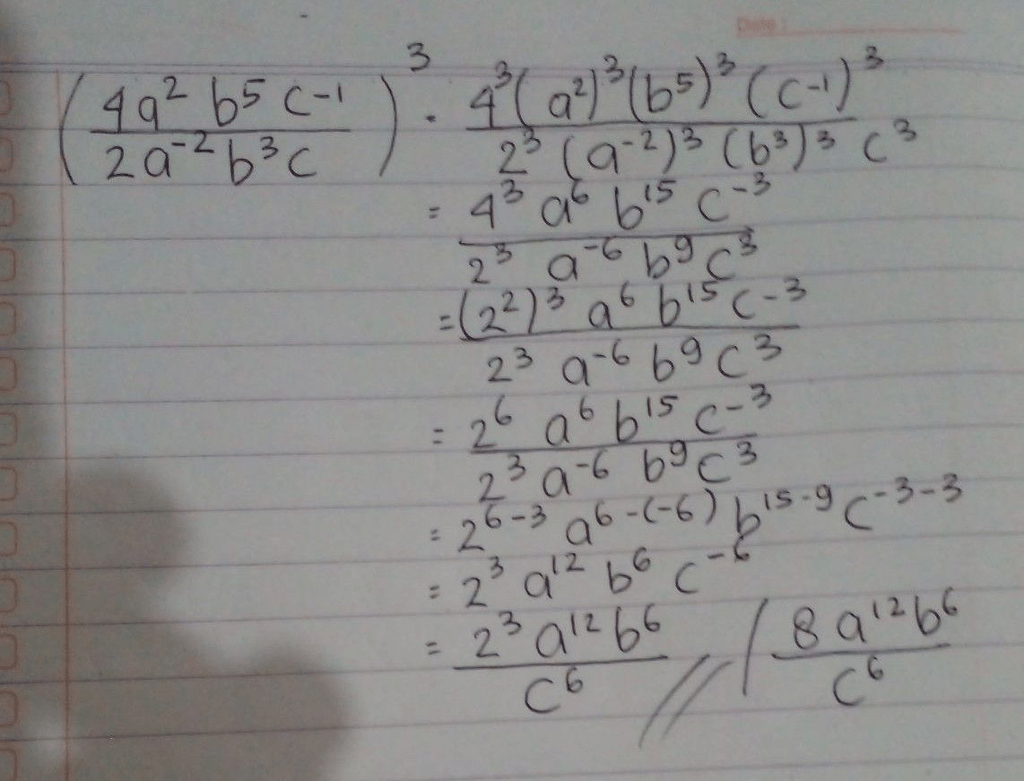 Date :
(4a² b⁵ c⁻¹ / 2a⁻² b³ c)³ · 4³ (a²)³ (b⁵)³ (c⁻¹)³ / 2³ (a⁻²)³ (b³)³ c³
= 4³ a⁶ b¹⁵ c⁻³ / 2³ a⁻⁶ b⁹ c³
= (2²)³ a⁶ b¹⁵ c⁻³ / 2³ a⁻⁶ b⁹ c³
= 2⁶ a⁶ b¹⁵ c⁻³ / 2³ a⁻⁶ b⁹ c³
= 2⁶⁻³ a⁶⁻⁽⁻⁶⁾ b¹⁵⁻⁹ c⁻³⁻³
= 2³ a¹² b⁶ c⁻⁶
= 2³ a¹² b⁶ / c⁶ // / 8 a¹² b⁶ / c⁶